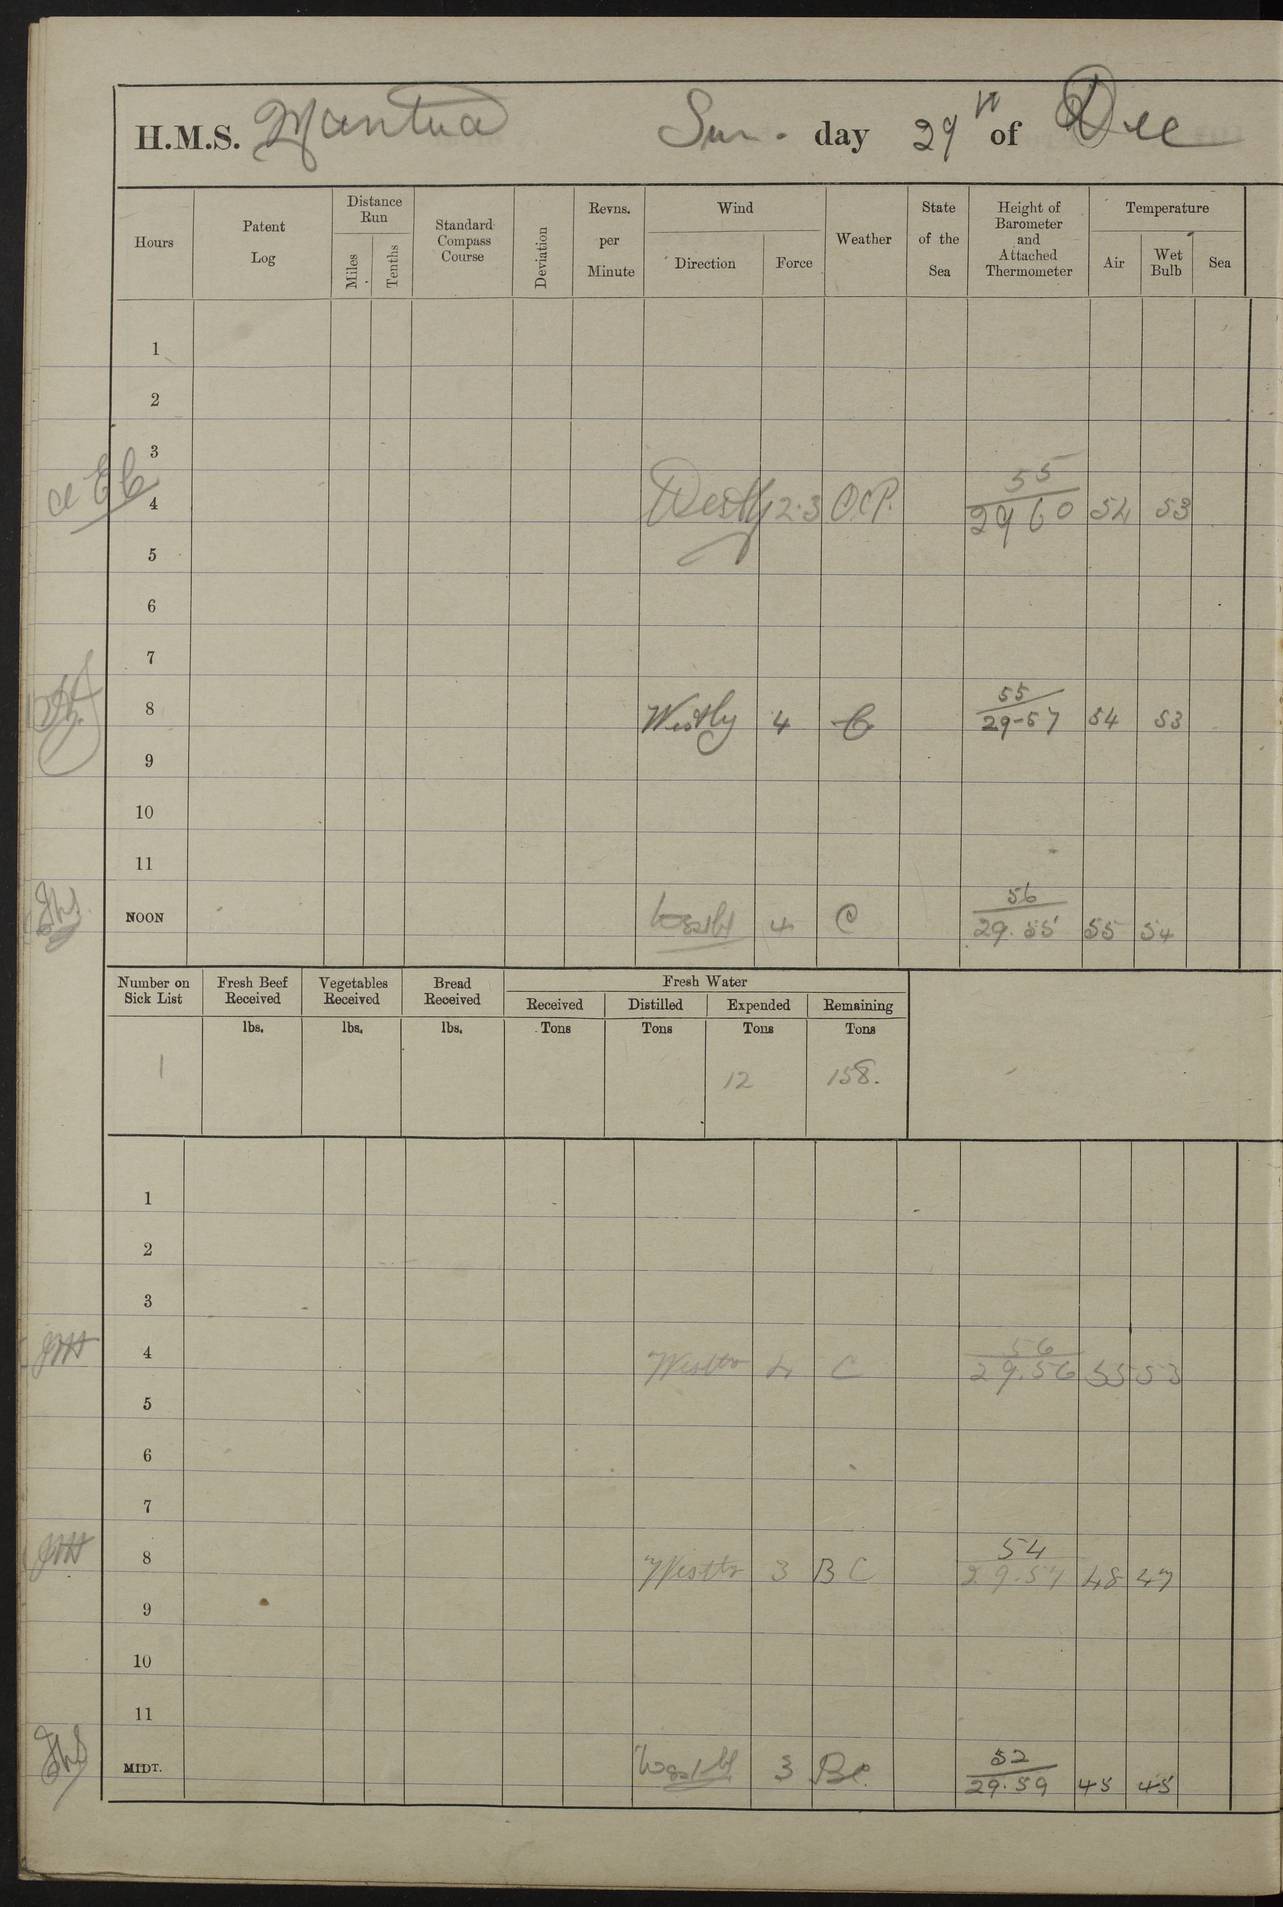 H.M.S. Mantua Sun. day 29th of Dec
Hours Patent Log Distance Run Miles Tenths Standard Compass Course Deviation Revns. per Minute Wind Direction Force Weather State of the Sea Height of Barometer and Attached Thermometer Temperature Air Wet Bulb Sea
1
2
3
55
4 Westly 2.3 O.C.P. 2960 54 53
5
6
7
55
8 Westly 4 C 29-57 54 53
9
10
11
56
NOON Westly 4 C 29.55 55 54
Number on Sick List Fresh Beef Received Vegetables Received Bread Received Fresh Water
Received Distilled Expended Remaining
lbs. lbs. lbs. Tons Tons Tons Tons
1 12 158.
1
2
3
56
JHH 4 4 C 29.56 55 53
5
6
7
54
JHH 8 3 B C 29.57 48 47
9
10
11
52
MIDT. Westly 3 Bc. 29.59 45 45